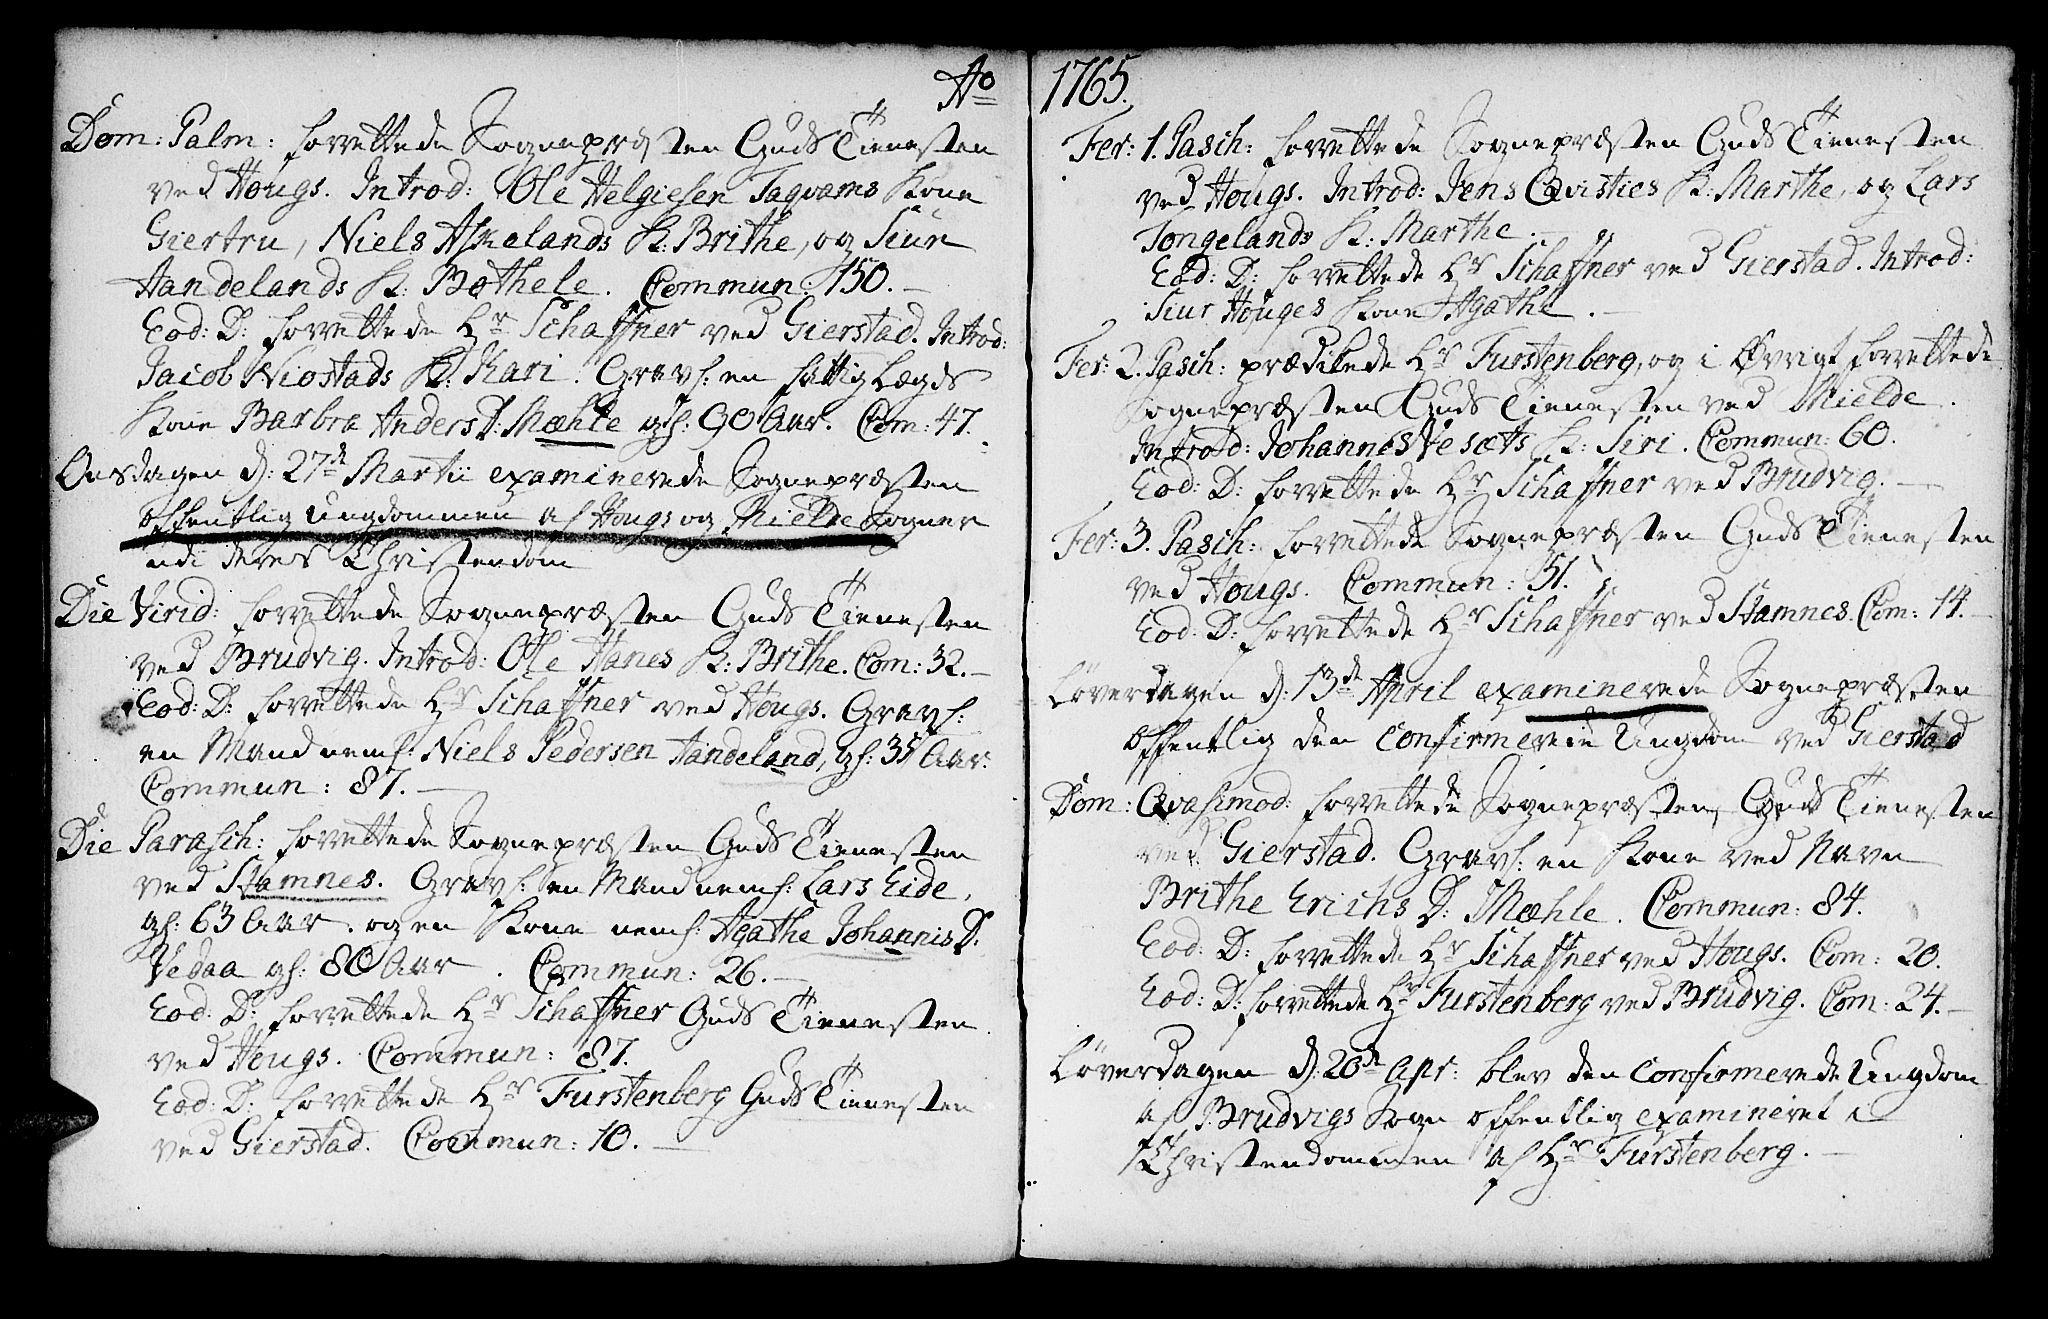 Ao
Dom: Palm: forrettede Sognepræsten Guds Tienesten
ved Hougs. Introd: Ole Helgiesen Taqvams Kone
Giertru, Niels Askelands K: Brithe, og Siur
Handelands K: Bothele. Commun: 150.
Eod: D: forrettede Hr Schaffner ved Gierstad. Introd:
Jacob Niostads K: Kari. Gravf: en fattig Lægds
Kone Barbra Anders D: Mæhle gl: 90 Aar. Com: 47.
Onsdagen d: 27de Martii examinerede Sognepræsten
offentlig Ungdommen af Hougs og Mielde Sogner
udi deres Christendom
Die Virid: forrettede Sognepræsten Guds Tienesten
ved Brudvig. Introd: Ole Hanes K: Brithe. Com: 32.
Eod: D: forrettede Hr Schaffner ved Hougs. Gravf:
en Mand nemf: Niels Pedersen Handeland, gl: 35 Aar.
Commun: 87.
Die Parasch: forrettede Sognepræsten Guds Tienesten
ved Stamnes. Gravf: en Mand nemf: Lars Eide,
gl: 63 Aar. og en Kone nemf: Agathe Johannis D:
Vedaa gl: 80 Aar. Commun: 26.
Eod: D: forrettede Hr Schaffner Guds Tienesten
ved Hougs. Commun: 87.
Eod: D: forrettede Hr Furstenberg Guds Tienesten
ved Gierstad. Commun: 10.
1765.
Fer: 1. Pasch: forrettede Sognepræsten Guds Tienesten
ved Hougs. Introd: Jens Qvisties K: Marthe, og Lars
Tongelands K: Marthe.
Eod: D: forrettede Hr Schaffner ved Gierstad. Introd:
Siur Houges Kone Agathe.
Fer: 2. Pasch: prædikede Hr Furstenberg, og i Øvrigt forrettede
Sognepræsten Guds Tienesten ved Mielde.
Introd: Johannes Vesæts K: Siri. Commun: 60.
Eod: D: forrettede Hr Schaffner ved Brudvig.
Fer: 3. Pasch: forrettede Sognepræsten Guds Tienesten
ved Hougs. Commun: 51.
Eod: D: forrettede Hr Schaffner ved Stamnes. Com: 14.
Løverdagen d: 13de April examinerede Sognepræsten
offentlig den confirmerede Ungdom ved Gierstad
Dom: Qvasimod: forrettede Sognepræsten Guds Tienesten
ved Gierstad. Gravf: en Kone ved Navn
Brithe Erichs D: Mæhle. Commun: 84.
Eod: D: forrettede Hr Schaffner ved Hougs. Com: 20.
Eod: D: forrettede Hr Furstenberg ved Brudvig. Com: 24.
Løverdagen d: 20de Apr: blev den confirmerede Ungdom
af Brudvigs Sogn offentlig examineret i
Christendommen af Hr Furstenberg.